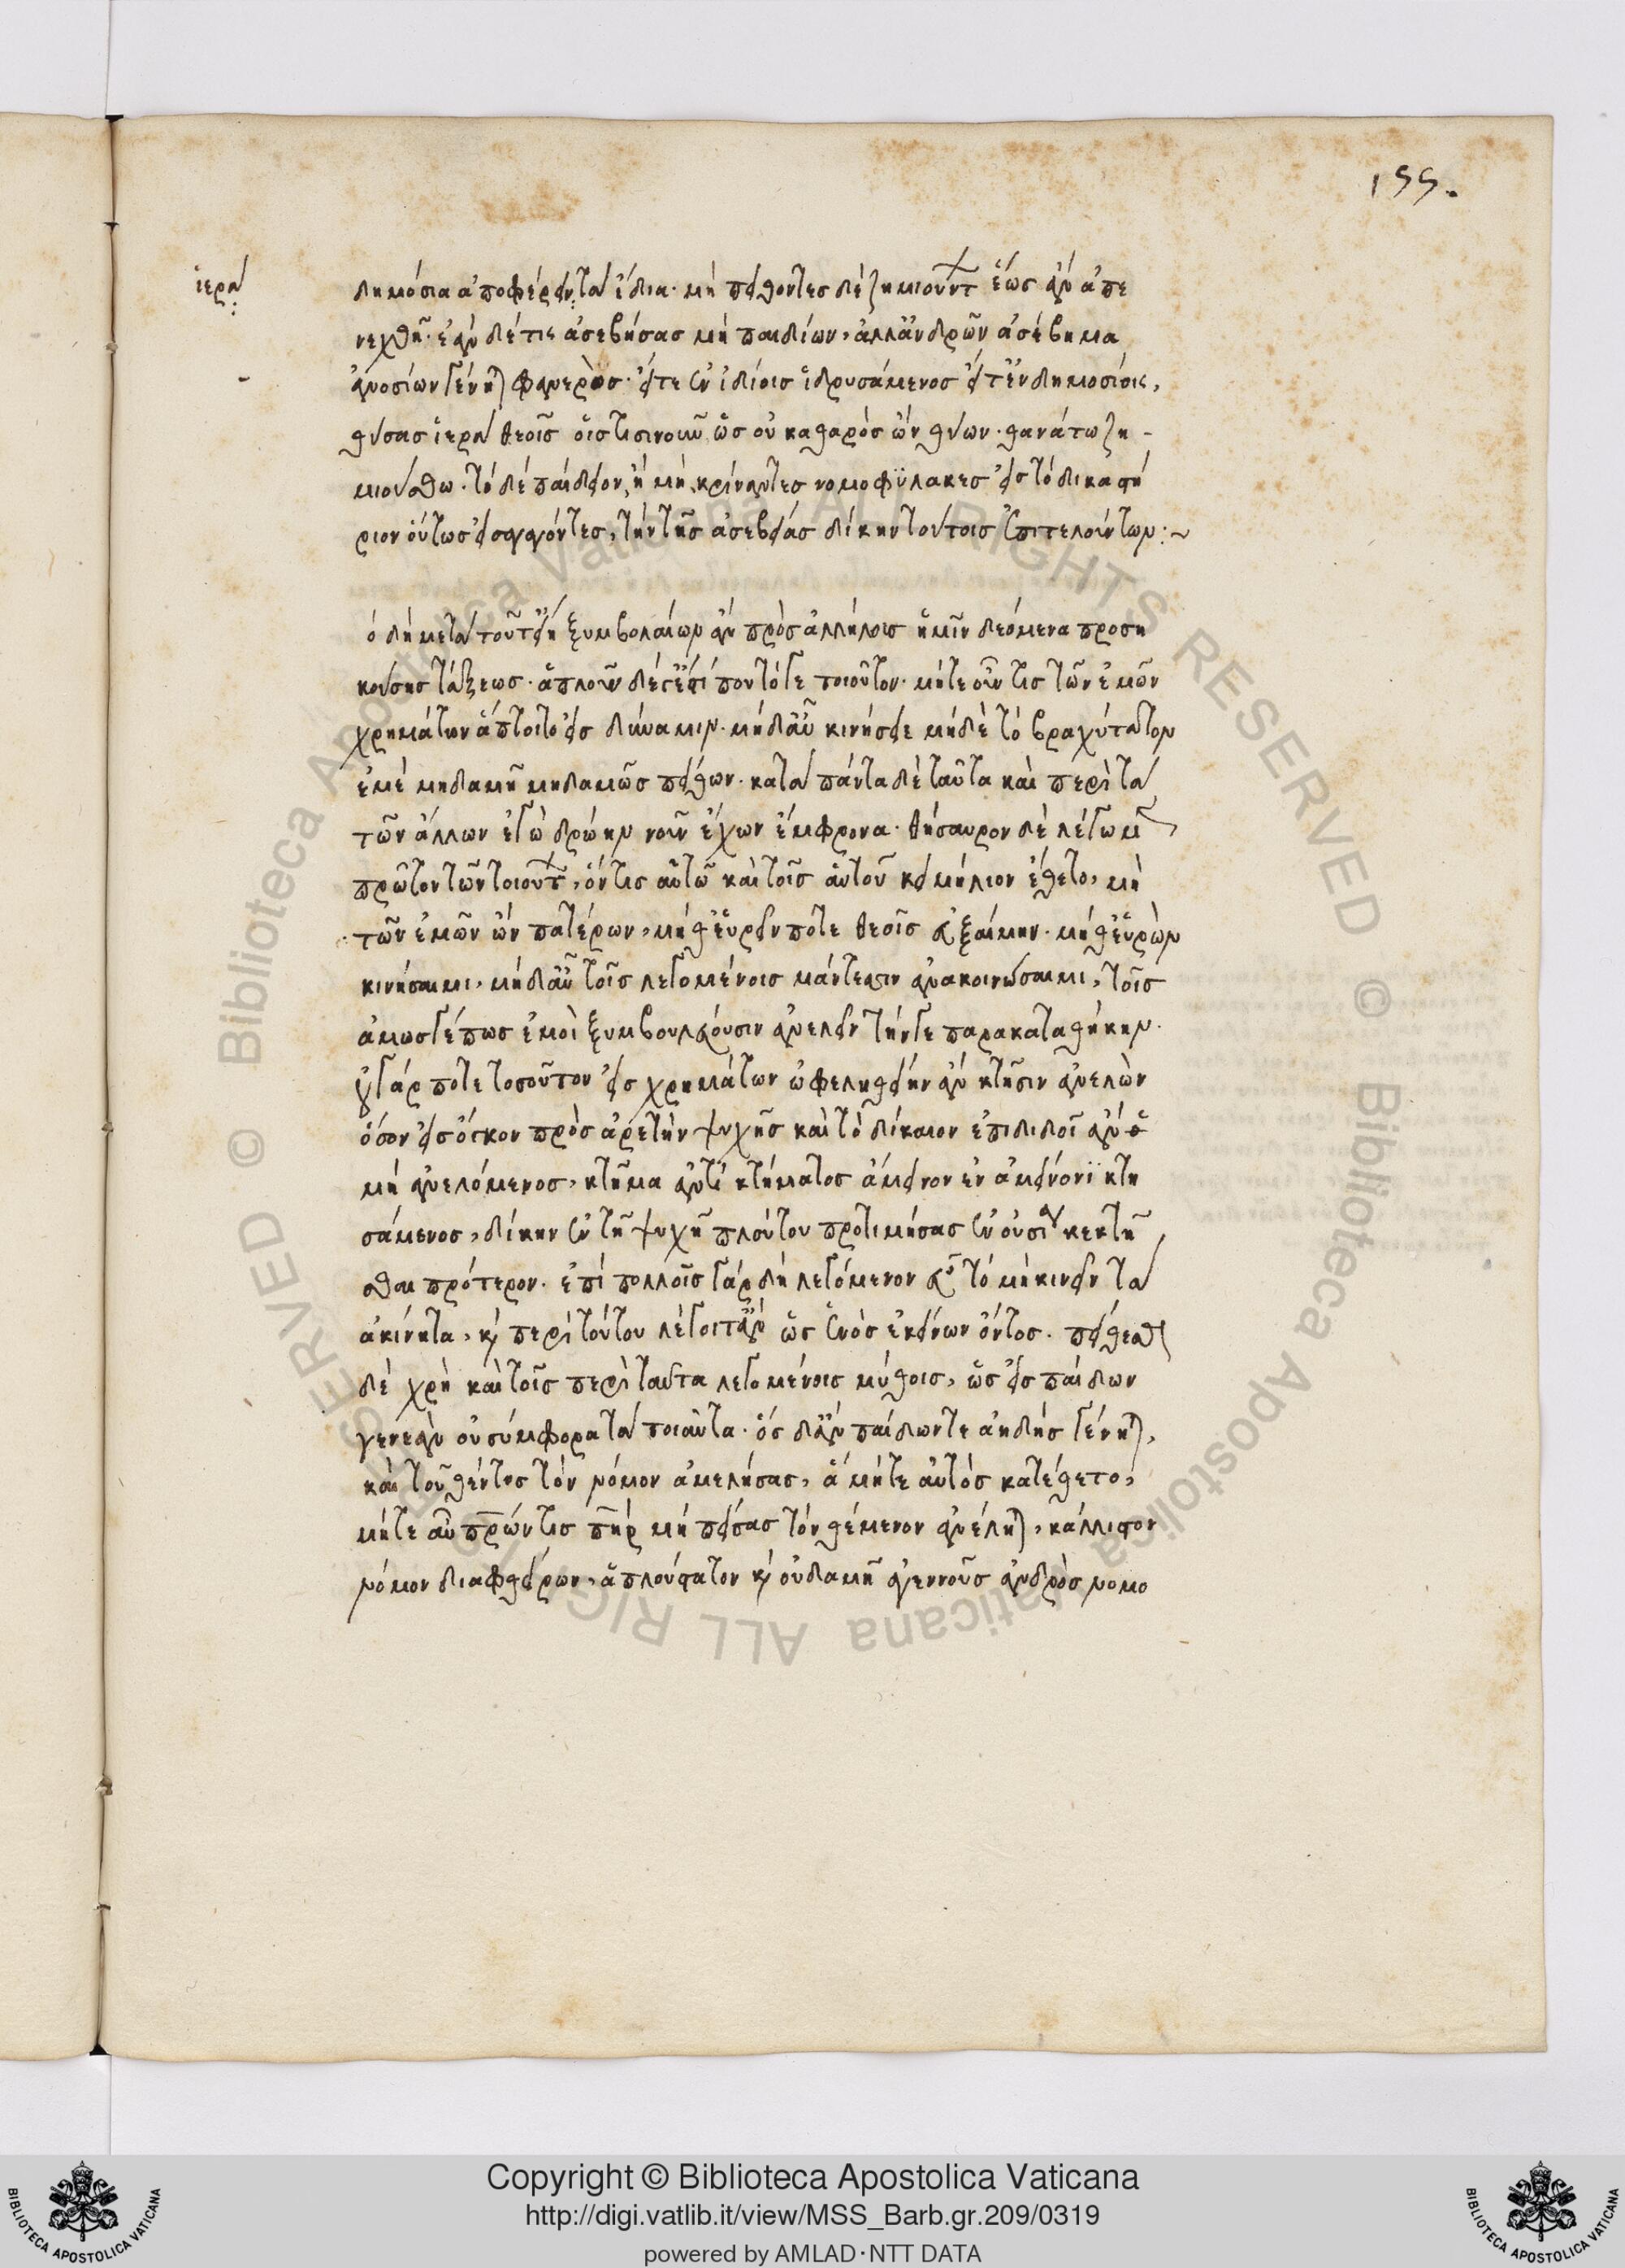 155.
ἱερὰ
δημόσια ἀποφέρειν τὰ ἴδια· μὴ πείθοντες δὲ ζημιούντων ἕως ἂν ἀπε
νεχθῆ· ἐὰν δέ τις ἀσεβήσας μὴ παιδίων, ἀλλ' ἀνδρῶν ἀσέβημα
ἀνοσίων γένηται φανερὸς· εἴτε ἐν ἰδίοις ἱδρυσάμενος εἴτ' ἐν δημοσίοις,
θύσας ἱερὰ θεοῖς οἷς τισινοῦν ὡς οὐ καθαρὸς ὢν θύων· θανάτω ζη-
μιούσθω. τὸ δὲ παίδειον, ἢ μὴ, κρίναντες νομοφύλακες εἰς τὸ δικαστή
ριον οὕτως εἰσαγαγόντες, τὴν τῆς ἀσεβείας δίκην τούτοις ἐπιτελούντων:~
ὁ δὴ μετὰ τοῦτ' εἴη ξυμβολαίων ἂν πρὸς ἀλλήλοις ἡμῖν δεόμενα προση
κούσης τάξεως· ἁπλοῦν δέ γ' ἐστί που τό γε τοιοῦτον· μήτε οὖν τις τῶν ἐμῶν
χρημάτων ἅπτοιτο εἰς δύναμιν· μηδ' αὖ κινήσειε μηδὲ τὸ βραχύτατον
ἐμὲ μηδαμῆ μηδαμῶς πείθων· κατὰ πάντα δὲ ταῦτα καὶ περὶ τὰ
τῶν ἄλλων ἐγὼ δρώην νοῦν ἔχων ἔμφρονα· θησαυρον δὲ λέγωμεν
πρῶτον τῶν τοιούτων, ὅν τις αὑτῶ καὶ τοῖς αὑτοῦ κειμήλιον ἔθετο, μὴ
τῶν ἐμῶν ὢν πατέρων, μήθ' εὑρεῖν ποτε θεοῖς εὐξαίμην· μήθ' εὑρὼν
κινήσαιμι, μηδ' αὖ τοῖς λεγομένοις μάντεσιν ἀνακοινώσαιμι, τοῖς
ἁμωσγέπως ἐμοὶ ξυμβουλεύουσιν ἀνελεῖν τήν γε παρακαταθήκην.
οὐ γάρ ποτε τοσοῦτον εἰς χρημάτων ὠφεληθείην ἂν κτῆσιν ἀνελὼν
ὅσον εἰς ὄγκον πρὸς ἀρετὴν ψυχῆς καὶ τὸ δίκαιον ἐπιδιδοῖ ἂν
μὴ ἀνελόμενος, κτῆμα ἀντὶ κτήματος ἄμεινον ἐν ἀμείνονϊ κτη
σάμενος, δίκην ἐν τῆ ψυχῆ πλούτου προτιμήσας ἐν οὐσία κεκτῆ
σθαι πρότερον. ἐπὶ πολλοῖς γὰρ δὴ λεγόμενον εὖ τὸ μὴ κινεῖν τὰ
ἀκίνητα, καὶ περὶ τούτου λέγοιτ' ἂν ὡς ἑνὸς ἐκείνων ὄντος. πείθεσθαι
δὲ χρὴ καὶ τοῖς περὶ ταῦτα λεγομένοις μύθοις, ὡς εἰς παίδων
γενεὰν οὐ σύμφορα τὰ τοιαῦτα. ὃς δ' ἂν παίδων τε ἀκηδὴς γένηται,
καὶ τοῦ θέντος τὸν νόμον ἀμελήσας, ἃ μήτε αὐτὸς κατέθετο,
μήτε αὖ πατέρων τις πατὴρ μὴ πείσας τὸν θέμενον ἀνέληται, κάλλιστον
νόμον διαφθείρων, ἁπλούστατον καὶ οὐδαμῆ ἀγεννοῦς ἀνδρὸς νομο
Copyright © Biblioteca Apostolica Vaticana
http://digi.vatlib.it/view/MSS_Barb.gr.209/0319
powered by AMLAD·NTT DATA
BIBLIOTECA APOSTOLICA VATICANA
BIBLIOTECA APOSTOLICA VATICANA
© Biblioteca Apostolica Vaticana ALL RIGHTS RESERVED © Biblioteca Apostolica Vaticana ALL RIGHTS RESERVED